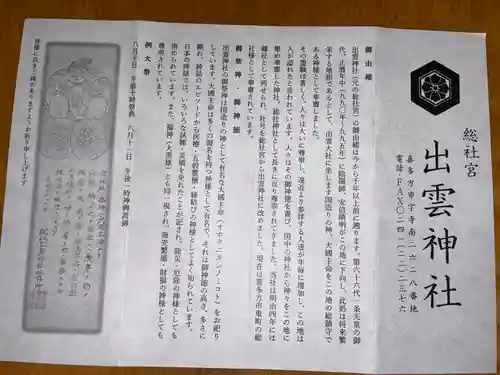 総社宮
出雲神社
喜多方市字寺南二六二八番地
電話・FAX〇二四一(二二)二三七六
御由緒
出雲神社(元の総社宮)の御由緒は今から千年以上前に遡ります。第六十六代一条天皇の御
代、正暦年中(九九〇年~九九五年)に陰陽師、安倍晴明がこの地に下向し、此処は将来繁
栄する地相であるとして、出雲大社に坐します国造りの神、大國主命をこの地の総鎮守で
ある神様として奉齋しました。
その霊験は著しく、人々は大いに尊崇し、遠近より参拝する人達が年毎に増加し、この地は
人が溢れたと言われています。人々はその御神徳を貴び、国中の神社から神々をこの地に
集め奉齋した神社、総社神社として長きに亘り尊崇されてきました。当社は明治四年には
郷社として列せられ、社号を総社宮から出雲神社に改めました。現在は喜多方市東町の総
社様として奉齋されています。
御祭神・御神徳
出雲神社の御祭神は国造りの神として有名な大國主命(オオクニヌシノミコト)をお祀り
しています。大國主命は多くの御名を持つ神様として有名で、それは御神徳の高き、多さに
顕れ、神話のエピソードから医療・五穀豊穣・縁結びの神様としてよく知られています。
日本の神話では、いろいろな試練・災難を免れたことが記され、除災・厄除の神様としても
崇められています。また、福神(大黒様)とも同一視され、商売繁盛・財福の神様としても
尊崇されています。
例大祭
八月十日 午前十時祭典 八月十一日 午後一時神輿渡御
皆様に良きご縁がありますようお祈り申し上げます